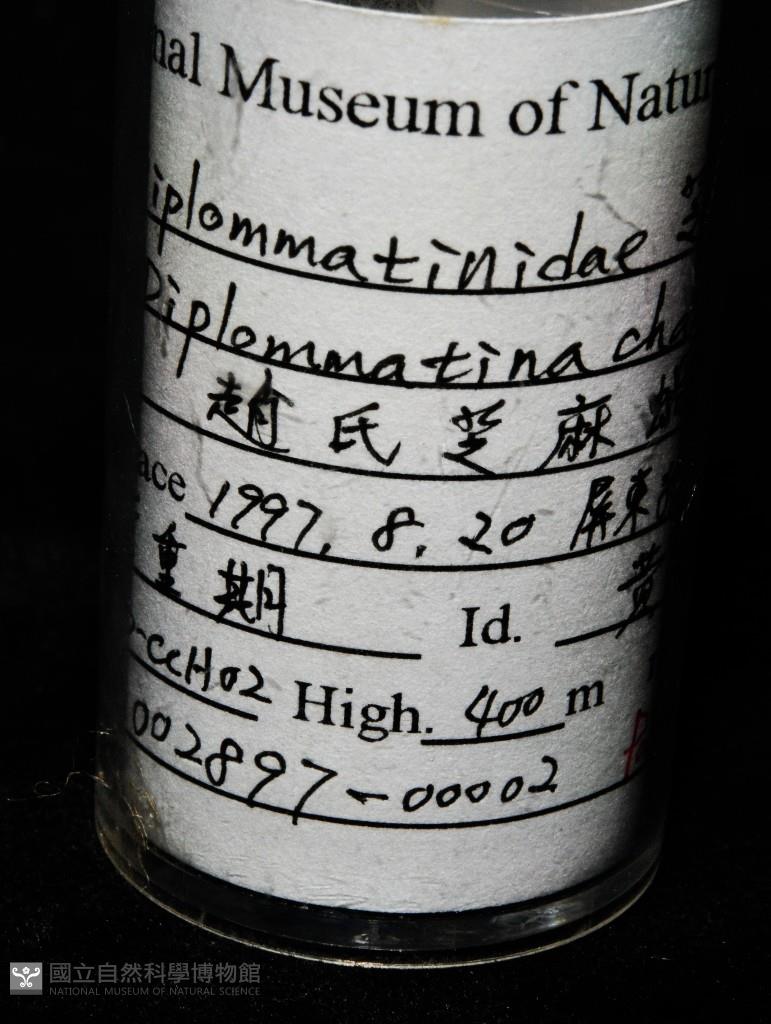 nal Museum of Natur
iplommatinidae
Diplommatina cha
趙氏芝麻
ace 1997. 8. 20 屏東
重期 Id. 黃
-CCH02 High. 400 m
002897-00002
國立自然科學博物館
NATIONAL MUSEUM OF NATURAL SCIENCE